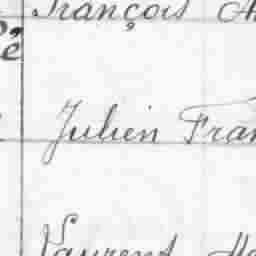 François
Julien Fran
Laurent